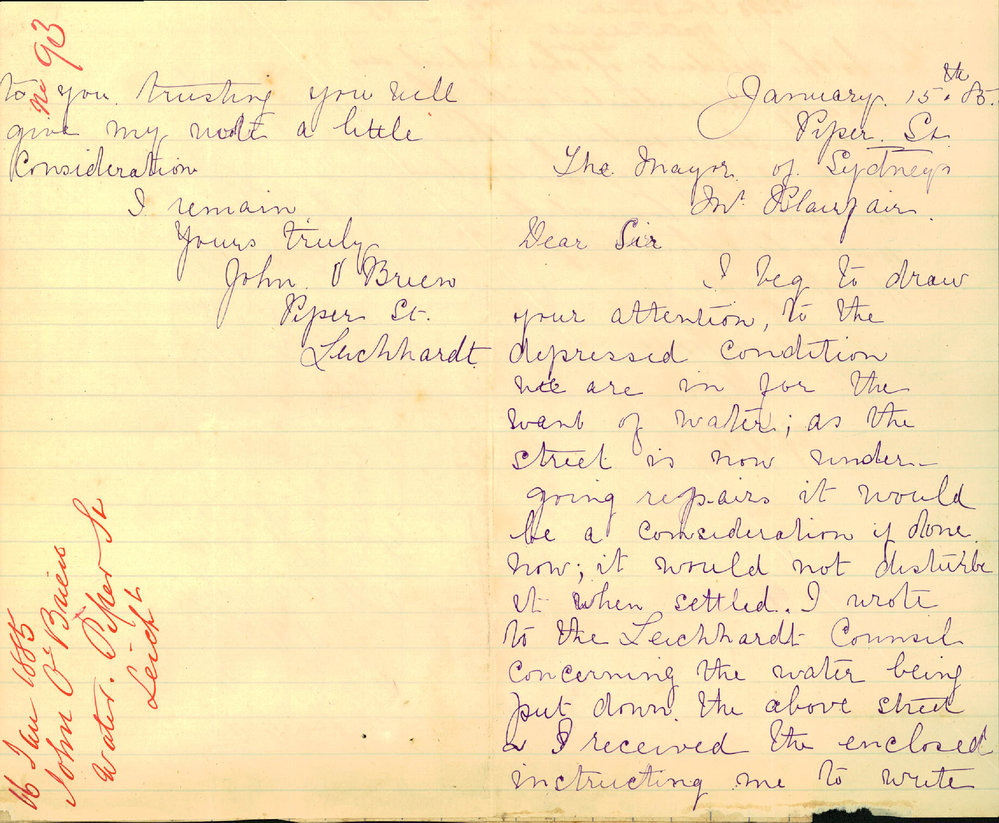 January. 15.th 85.
Piper. St.
The. Mayor. of. Sydney
Mr. Blairfair.
Dear Sir
I beg to draw
your attention, to the
depressed condition
we are in for the
want of water; as the
street is now under-
going repairs it would
be a consideration if done.
now; it would not disturbe
it when settled. I wrote
to the Leichhardt Counsil
concerning the water being
put down. the above street
& I received the enclosed
instructing me to write
to you. trusting you will
give my note a little
Consideration
I remain
Yours truly
John. O Brien
Piper St.
Leichhardt.
No 93
16 Jan 1885
John O'Brien
Water. Piper St
Leichht